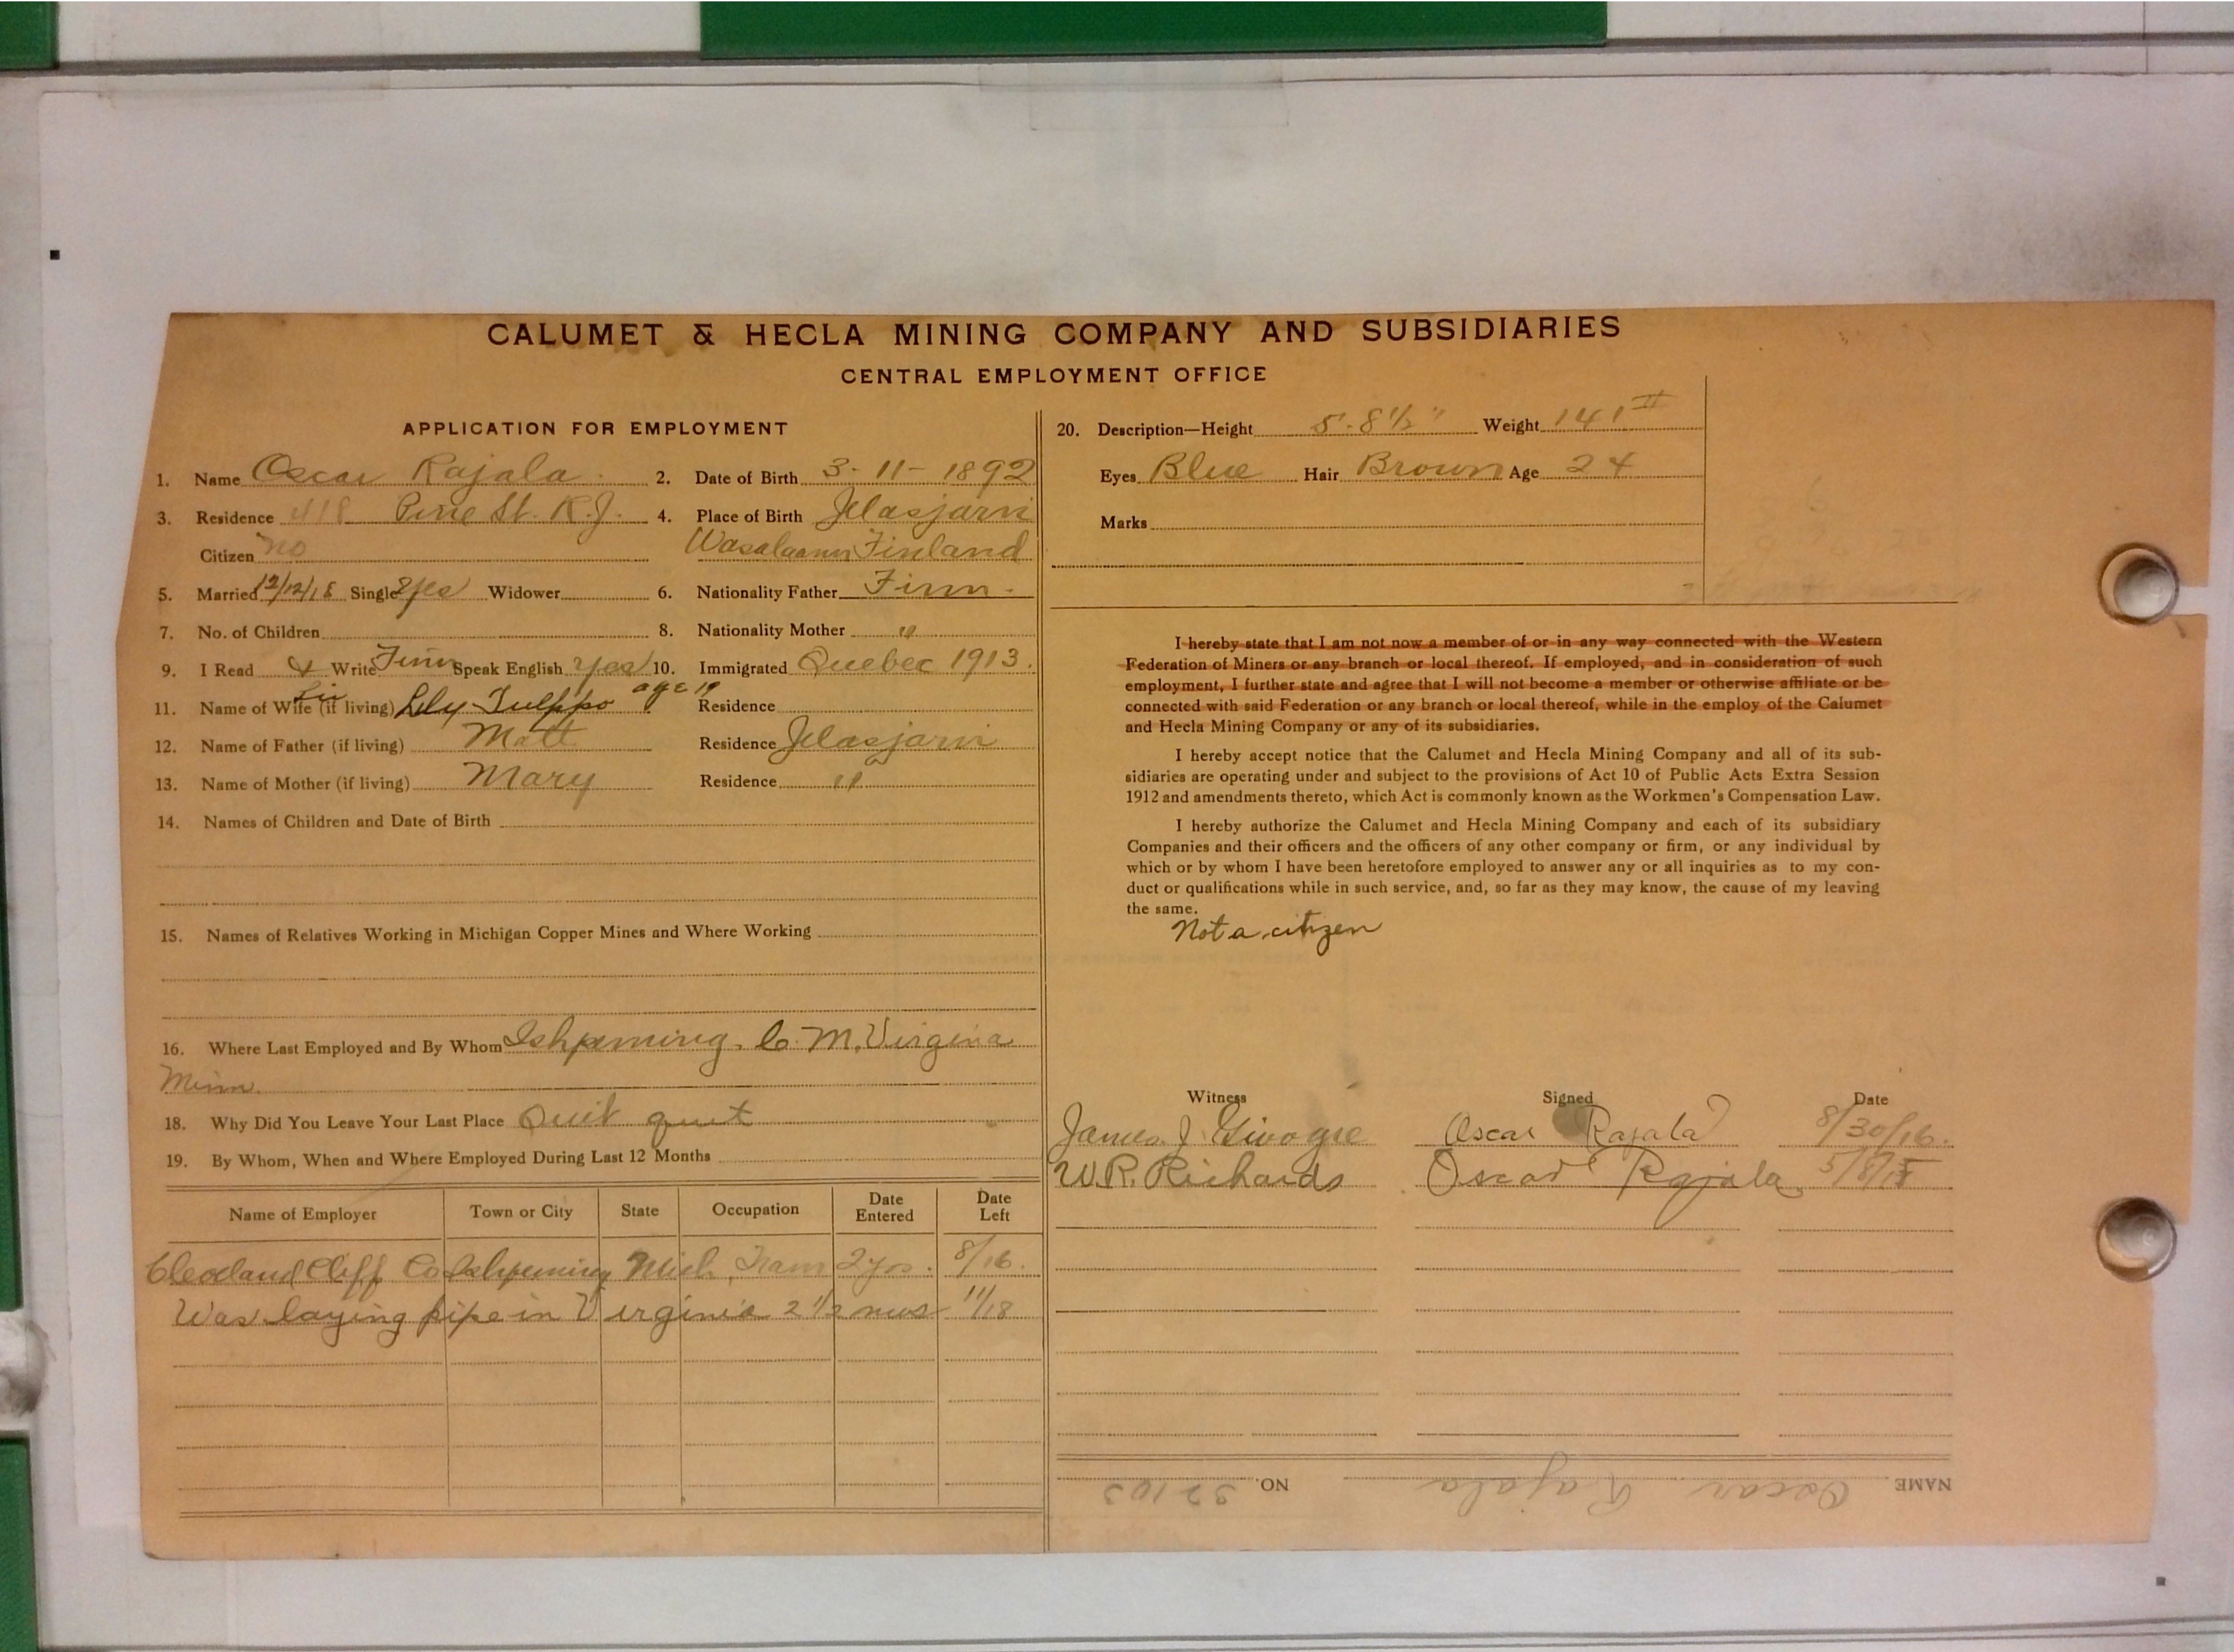 CALUMET & HECLA MINING COMPANY AND SUBSIDIARIES
CENTRAL EMPLOYMENT OFFICE
APPLICATION FOR EMPLOYMENT
1. Name Oscar Rajala 2. Date of Birth 3-11-1892
3. Residence 418 Pine St. R.J. 4. Place of Birth Jelasjarvi
Citizen no Wasalaann Finland
5. Married 12/12/18 Single yes Widower 6. Nationality Father Finn.
7. No. of Children 8. Nationality Mother "
9. I Read & Write Finn Speak English yes 10. Immigrated Quebec 1913.
11. Name of Wife (if living) Lily Tulppo age 19 Residence
12. Name of Father (if living) Matt Residence Jelasjarvi
13. Name of Mother (if living) Mary Residence "
14. Names of Children and Date of Birth
15. Names of Relatives Working in Michigan Copper Mines and Where Working
16. Where Last Employed and By Whom Ishpeming. C. M. Virginia
Minn.
18. Why Did You Leave Your Last Place Quit quit
19. By Whom, When and Where Employed During Last 12 Months
Name of Employer Town or City State Occupation Date Entered Date Left
Cleveland Cliff Co Ishpeming Mich. Tram 2 yrs. 8/16.
Was laying pipe in Virginia 2 1/2 mos 11/18
20. Description—Height 5'-8 1/2" Weight 141
Eyes Blue Hair Brown Age 24
Marks
I hereby state that I am not now a member of or in any way connected with the Western
Federation of Miners or any branch or local thereof. If employed, and in consideration of such
employment, I further state and agree that I will not become a member or otherwise affiliate or be
connected with said Federation or any branch or local thereof, while in the employ of the Calumet
and Hecla Mining Company or any of its subsidiaries.
I hereby accept notice that the Calumet and Hecla Mining Company and all of its sub-
sidiaries are operating under and subject to the provisions of Act 10 of Public Acts Extra Session
1912 and amendments thereto, which Act is commonly known as the Workmen's Compensation Law.
I hereby authorize the Calumet and Hecla Mining Company and each of its subsidiary
Companies and their officers and the officers of any other company or firm, or any individual by
which or by whom I have been heretofore employed to answer any or all inquiries as to my con-
duct or qualifications while in such service, and, so far as they may know, the cause of my leaving
the same.
Not a citizen
Witness Signed Date
James J. Oscar Rajala 8/30/16.
W.R. Richards Oscar Rajala
NAME Oscar Rajala NO. 32103